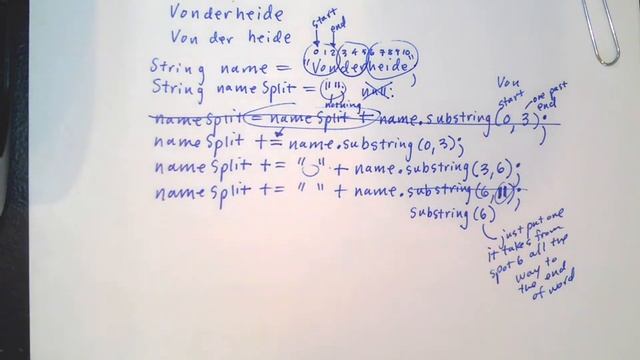 Vonderheide
Von der heide
start
end
0 1 2 3 4 5 6 7 8 9 10
String name = "Vonderheide";
String nameSplit = ""; null;
nothing
Von
start one past end
nameSplit = nameSplit + name.substring(0, 3);
nameSplit += name.substring(0,3);
nameSplit += " " + name.substring(3,6);
nameSplit += " " + name.substring(6,11);
substring(6)
just put one
it takes from
spot 6 all the
way to
the end
of word